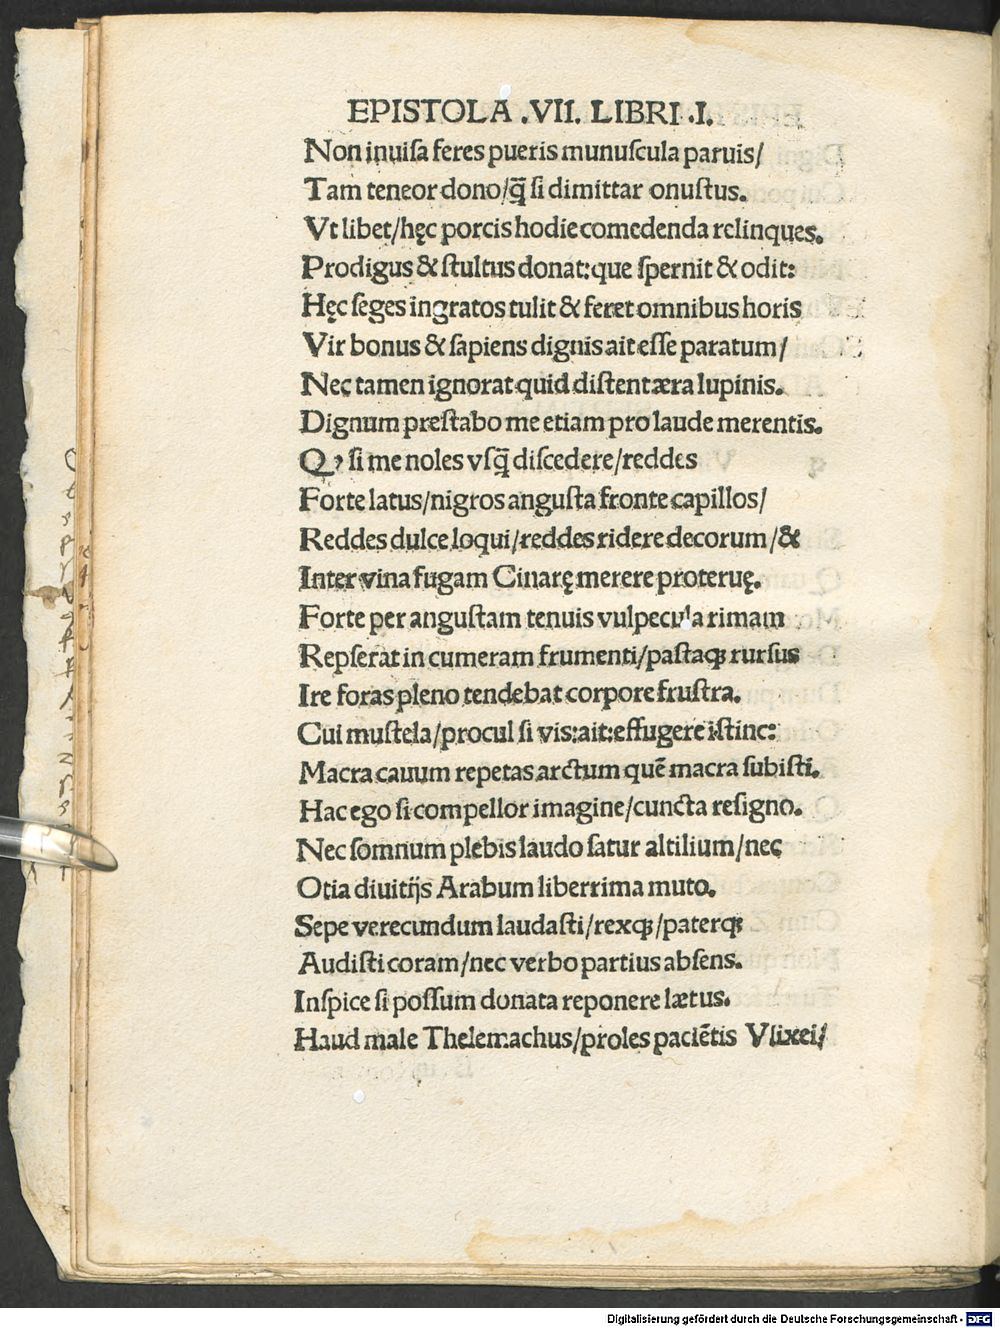 EPISTOLA .VII. LIBRI .I.
Non inuiſa feres pueris munuſcula paruis/
Tam teneor dono/q̃ ſi dimittar onuſtus.
Vt libet/hęc porcis hodie comedenda relinques.
Prodigus & ſtultus donat: que ſpernit & odit:
Hęc ſeges ingratos tulit & feret omnibus horis
Vir bonus & ſapiens dignis ait eſſe paratum/
Nec tamen ignorat quid diſtent æra lupinis.
Dignum preſtabo me etiam pro laude merentis.
Qꝫ ſi me noles vſq̃ diſcedere/reddes
Forte latus/nigros anguſta fronte capillos/
Reddes dulce loqui/reddes ridere decorum/&
Inter vina fugam Cinarę merere proteruę.
Forte per anguſtam tenuis vulpecula rimam
Repſerat in cumeram frumenti/paſtaqꝫ rurſus
Ire foras pleno tendebat corpore fruſtra.
Cui muſtela/procul ſi vis: ait: effugere iſtinc:
Macra cauum repetas arctum quē macra ſubiſti.
Hac ego ſi compellor imagine/cuncta reſigno.
Nec ſomnum plebis laudo ſatur altilium/nec
Otia diuitijs Arabum liberrima muto.
Sepe verecundum laudaſti/rexqꝫ/paterqꝫ
Audiſti coram/nec verbo partius abſens.
Inſpice ſi poſſum donata reponere lætus.
Haud male Thelemachus/proles paciētis Vlixei/
Digitalisierung gefördert durch die Deutsche Forschungsgemeinschaft - DFG